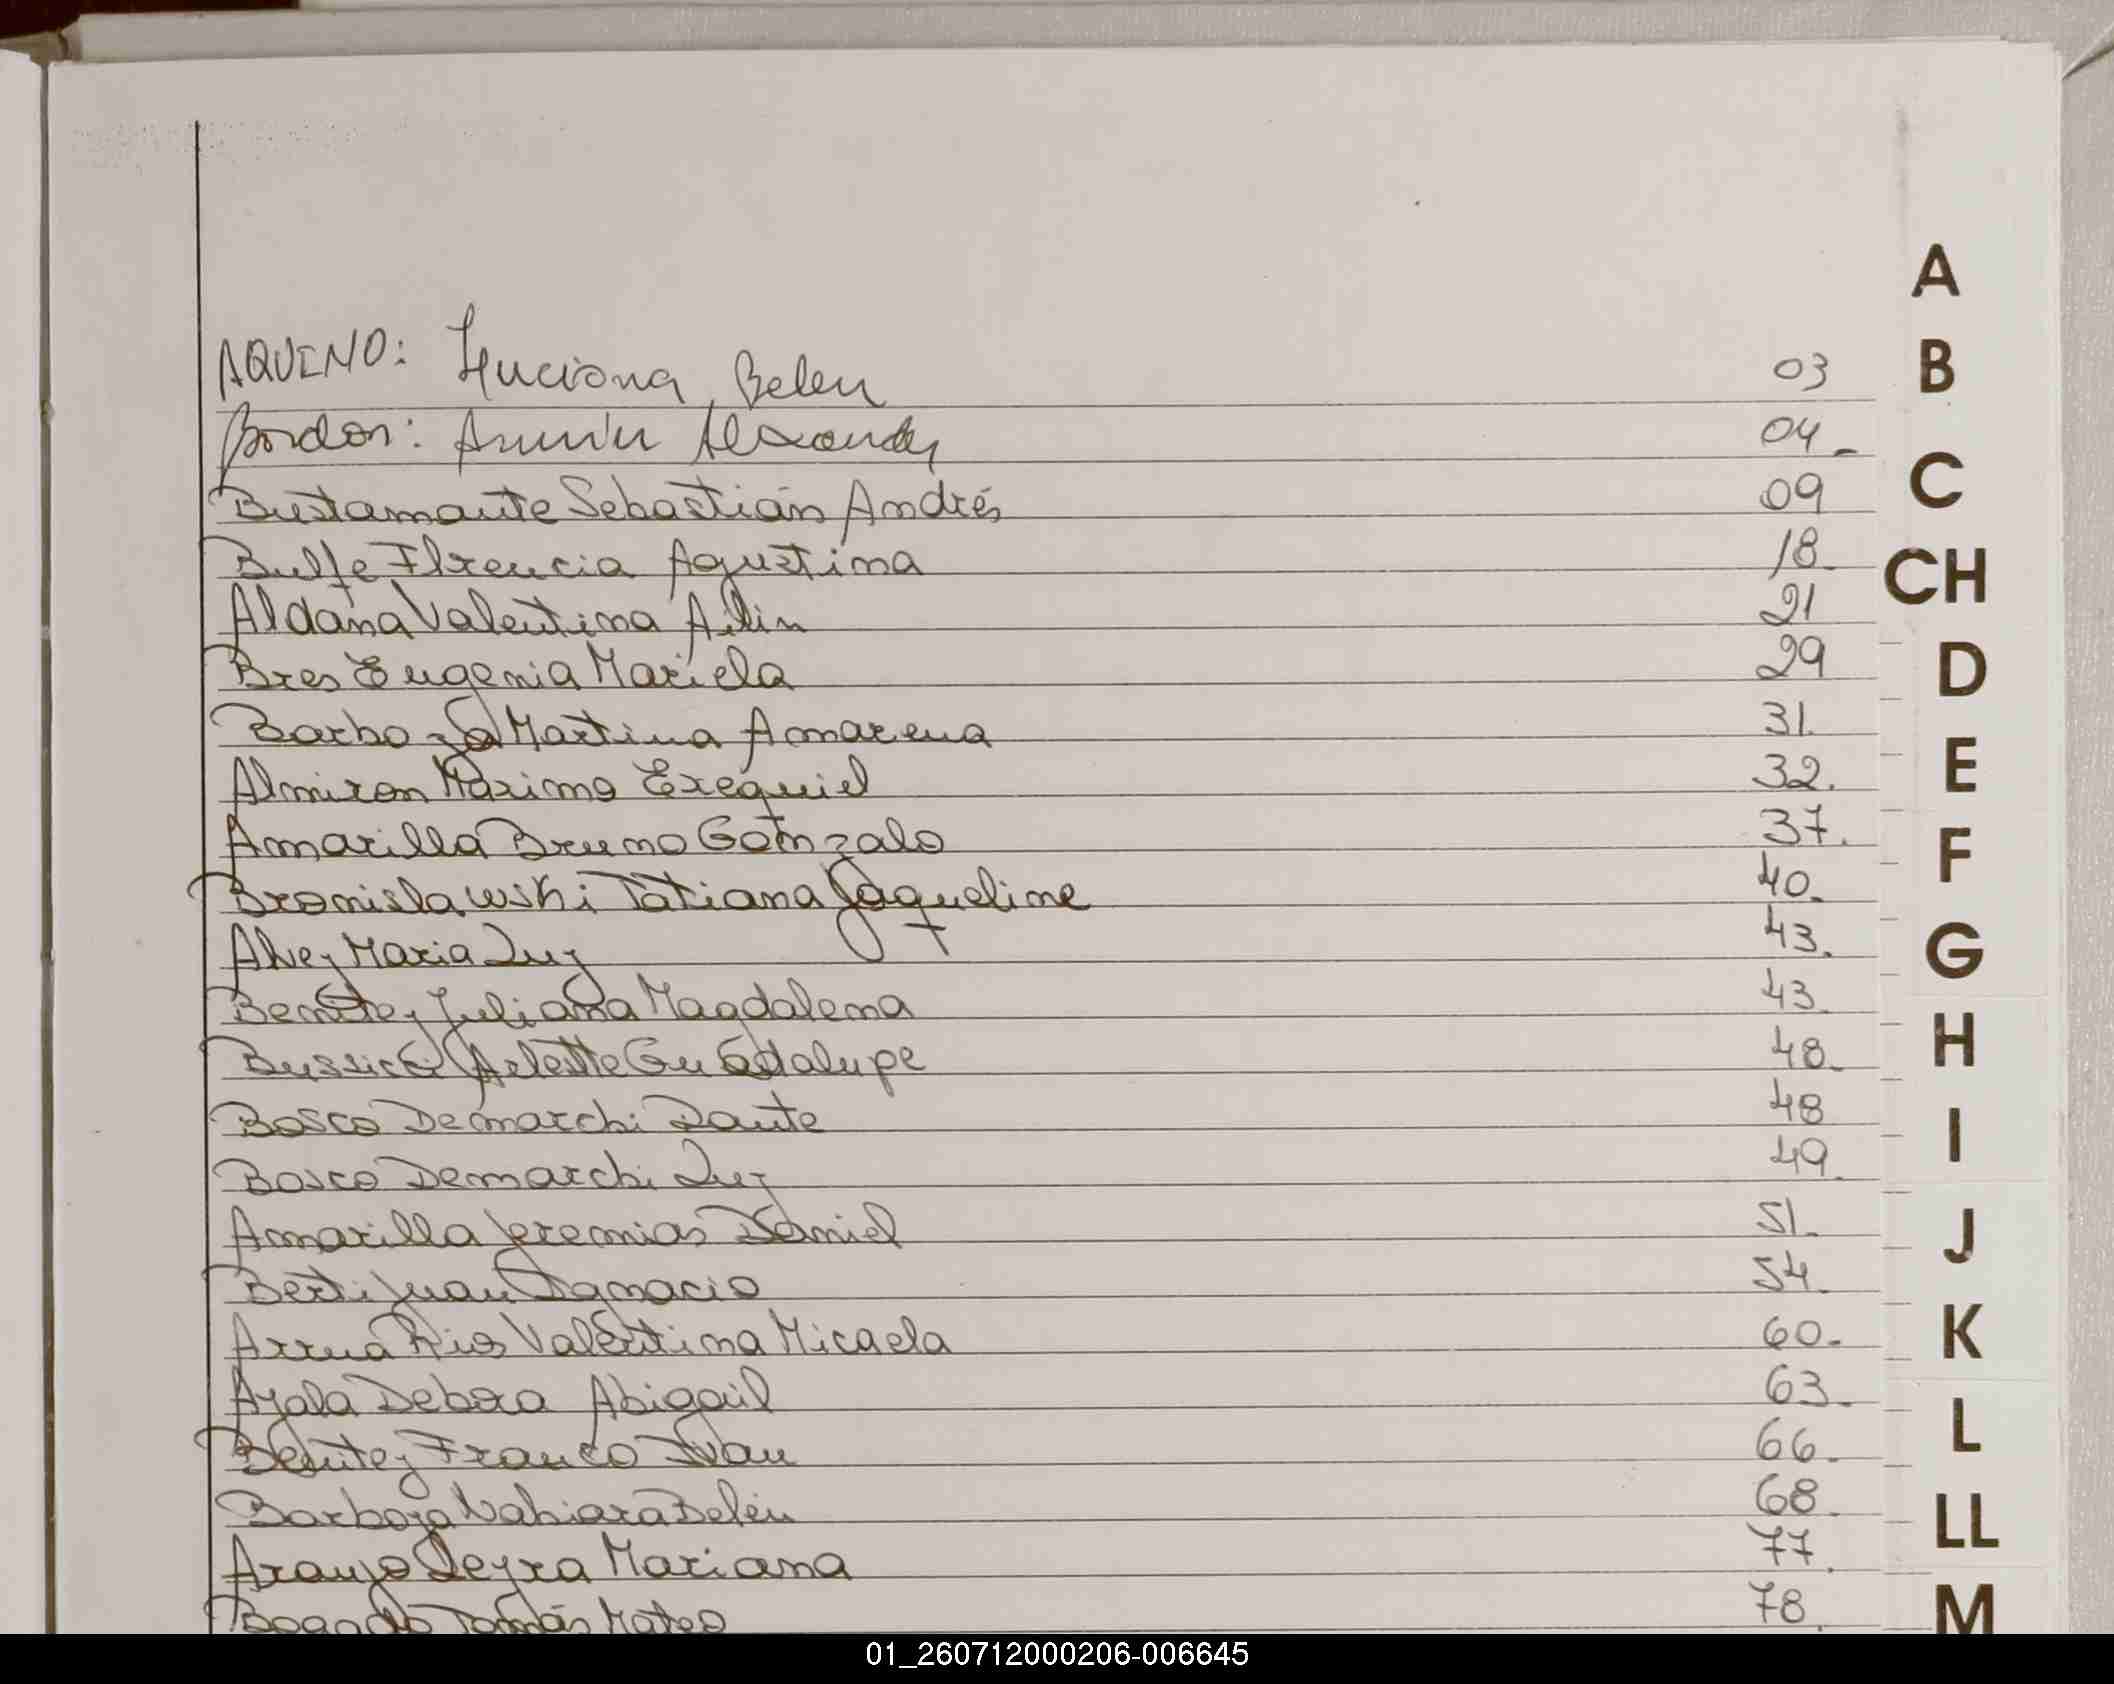 AQUINO: Luciana Belen 03
Bordon: Alexander 04
Bustamante Sebastián Andrés 09
Bulfe Florencia Agustina 18
Aldana Valentina Ailin 21
Bres Eugenia Mariela 29
Barboza Martina Amarena 31
Almiron Maximo Exequiel 32.
Amarilla Bruno Gonzalo 37.
Bronislawski Tatiana Jaqueline 40.
Alvez Maria Luz 43.
Benitez Juliana Magdalena 43
Arlette Guadalupe 48
Bosco Demarchi Dante 48
Bosco Demarchi Luz 49
Amarilla Jeremias Daniel 51
Berti Juan Ignacio 54
Arrua Rios Valentina Micaela 60.
Ayala Debora Abigail 63
Benitez Franco Ivan 66
Barboza Belén 68
Araujo Leyra Mariana 77.
Bogado Tomás Mateo 78
A
B
C
CH
D
E
F
G
H
I
J
K
L
LL
M
01_260712000206-006645